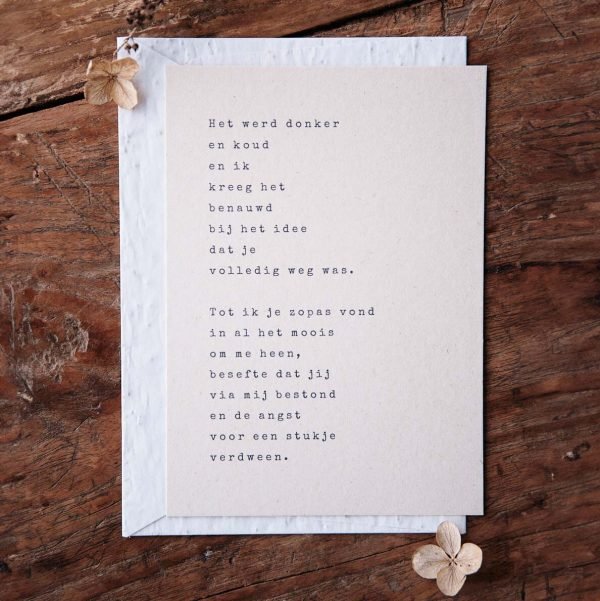 Het werd donker
en koud
en ik
kreeg het
benauwd
bij het idee
dat je
volledig weg was.
Tot ik je zopas vond
in al het moois
om me heen,
besefte dat jij
via mij bestond
en de angst
voor een stukje
verdween.